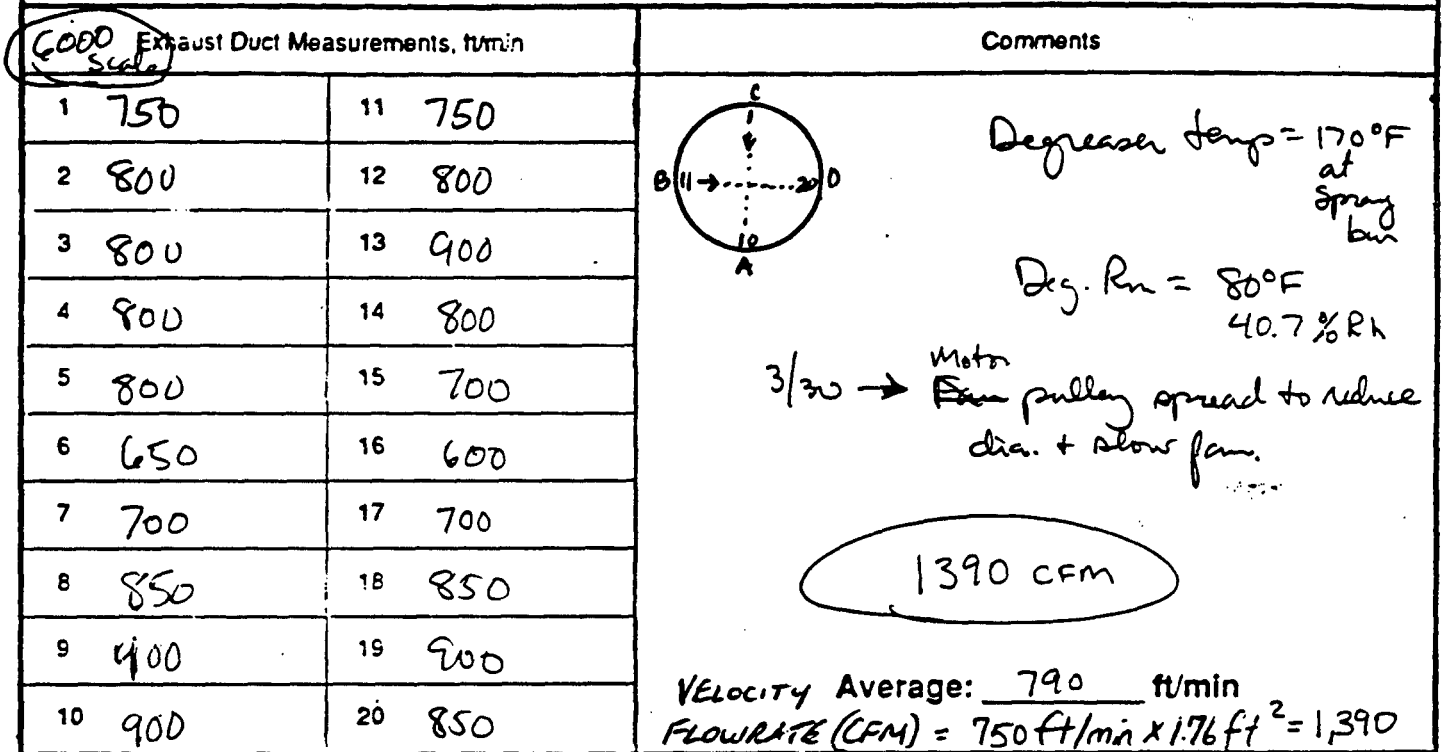 6000 scale Exhaust Duct Measurements, ft/min
Comments
1 750 11 750
2 800 12 800
3 800 13 900
4 800 14 800
5 800 15 700
6 650 16 600
7 700 17 700
8 850 18 850
9 900 19 900
10 900 20 850
C
B 11 20 D
10
A
Degreaser temp = 170°F
at
spray
bar
Deg. Rm = 80°F
40.7 % Rh
Motor
3/30 → Fan pulley spread to reduce
dia. + slow fan.
1390 CFM
VELOCITY Average: 790 ft/min
FLOWRATE (CFM) = 750 ft/min x 1.76 ft² = 1,390